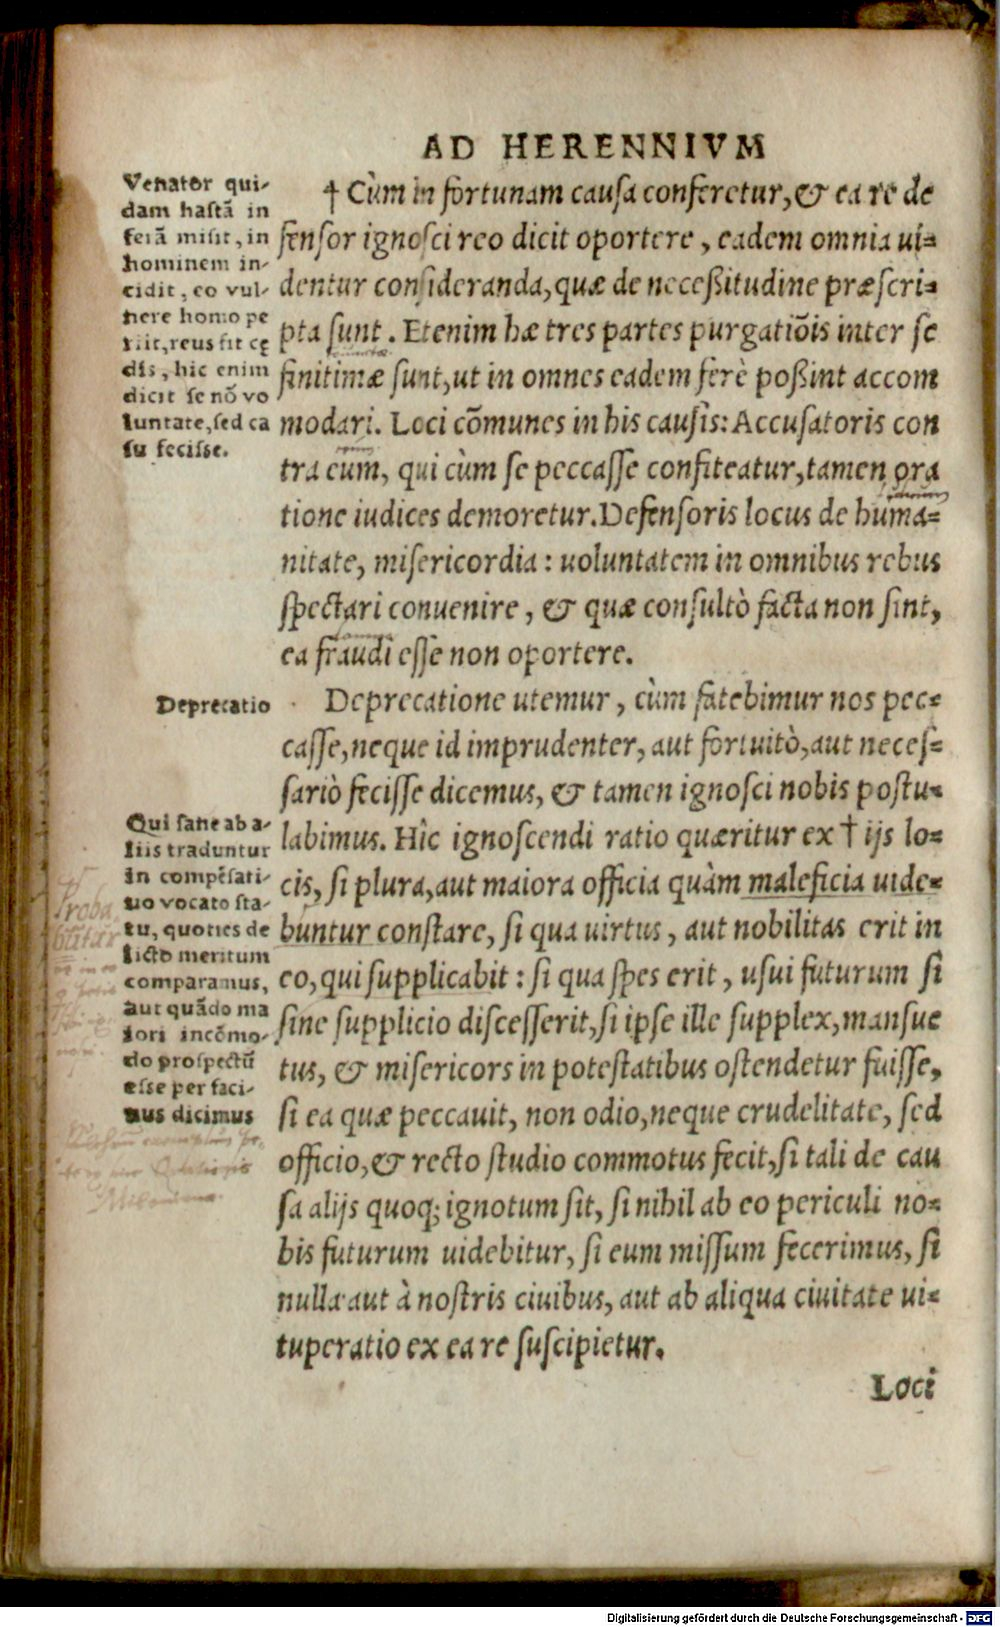 AD HERENNIVM
Venator qui-
dam hastā in
ferā misit, in
hominem in-
cidit, eo vul-
nere homo pe
riit, reus fit cę
dis, hic enim
dicit se nō vo
luntate, sed ca
su fecisse.
† Cùm in fortunam causa conferetur, & ea re de
fensor ignosci reo dicit oportere, eadem omnia ui-
dentur consideranda, quæ de necessitudine præscri-
pta sunt. Etenim hæ tres partes purgatiōis inter se
finitimæ sunt, ut in omnes eadem ferè possint accom
modari. Loci cōmunes in his causis: Accusatoris con
tra eum, qui cùm se peccasse confiteatur, tamen ora
tione iudices demoretur. Defensoris locus de huma-
nitate, misericordia: uoluntatem in omnibus rebus
spectari conuenire, & quæ consultò facta non sint,
ea fraudi esse non oportere.
Deprecatio
Deprecatione utemur, cùm fatebimur nos pec-
casse, neque id imprudenter, aut fortuitò, aut neces-
sariò fecisse dicemus, & tamen ignosci nobis postu-
labimus. Hîc ignoscendi ratio quæritur ex † ijs lo-
cis, si plura, aut maiora officia quàm maleficia uide-
buntur constare, si qua uirtus, aut nobilitas erit in
eo, qui supplicabit: si qua spes erit, usui futurum si
sine supplicio discesserit, si ipse ille supplex, mansue
tus, & misericors in potestatibus ostendetur fuisse,
si ea quæ peccauit, non odio, neque crudelitate, sed
officio, & recto studio commotus fecit, si tali de cau
sa alijs quoq; ignotum sit, si nihil ab eo periculi no-
bis futurum uidebitur, si eum missum fecerimus, si
nulla aut à nostris ciuibus, aut ab aliqua ciuitate ui-
tuperatio ex ea re suscipietur.
Qui sane ab a-
liis traduntur
in compēsati-
uo vocato sta-
tu, quoties de
licto meritum
comparamus,
aut quādo ma
iori incōmo-
do prospectū
esse per faci-
nus dicimus
Proba
Milonian
Loci
Digitalisierung gefördert durch die Deutsche Forschungsgemeinschaft - DFG